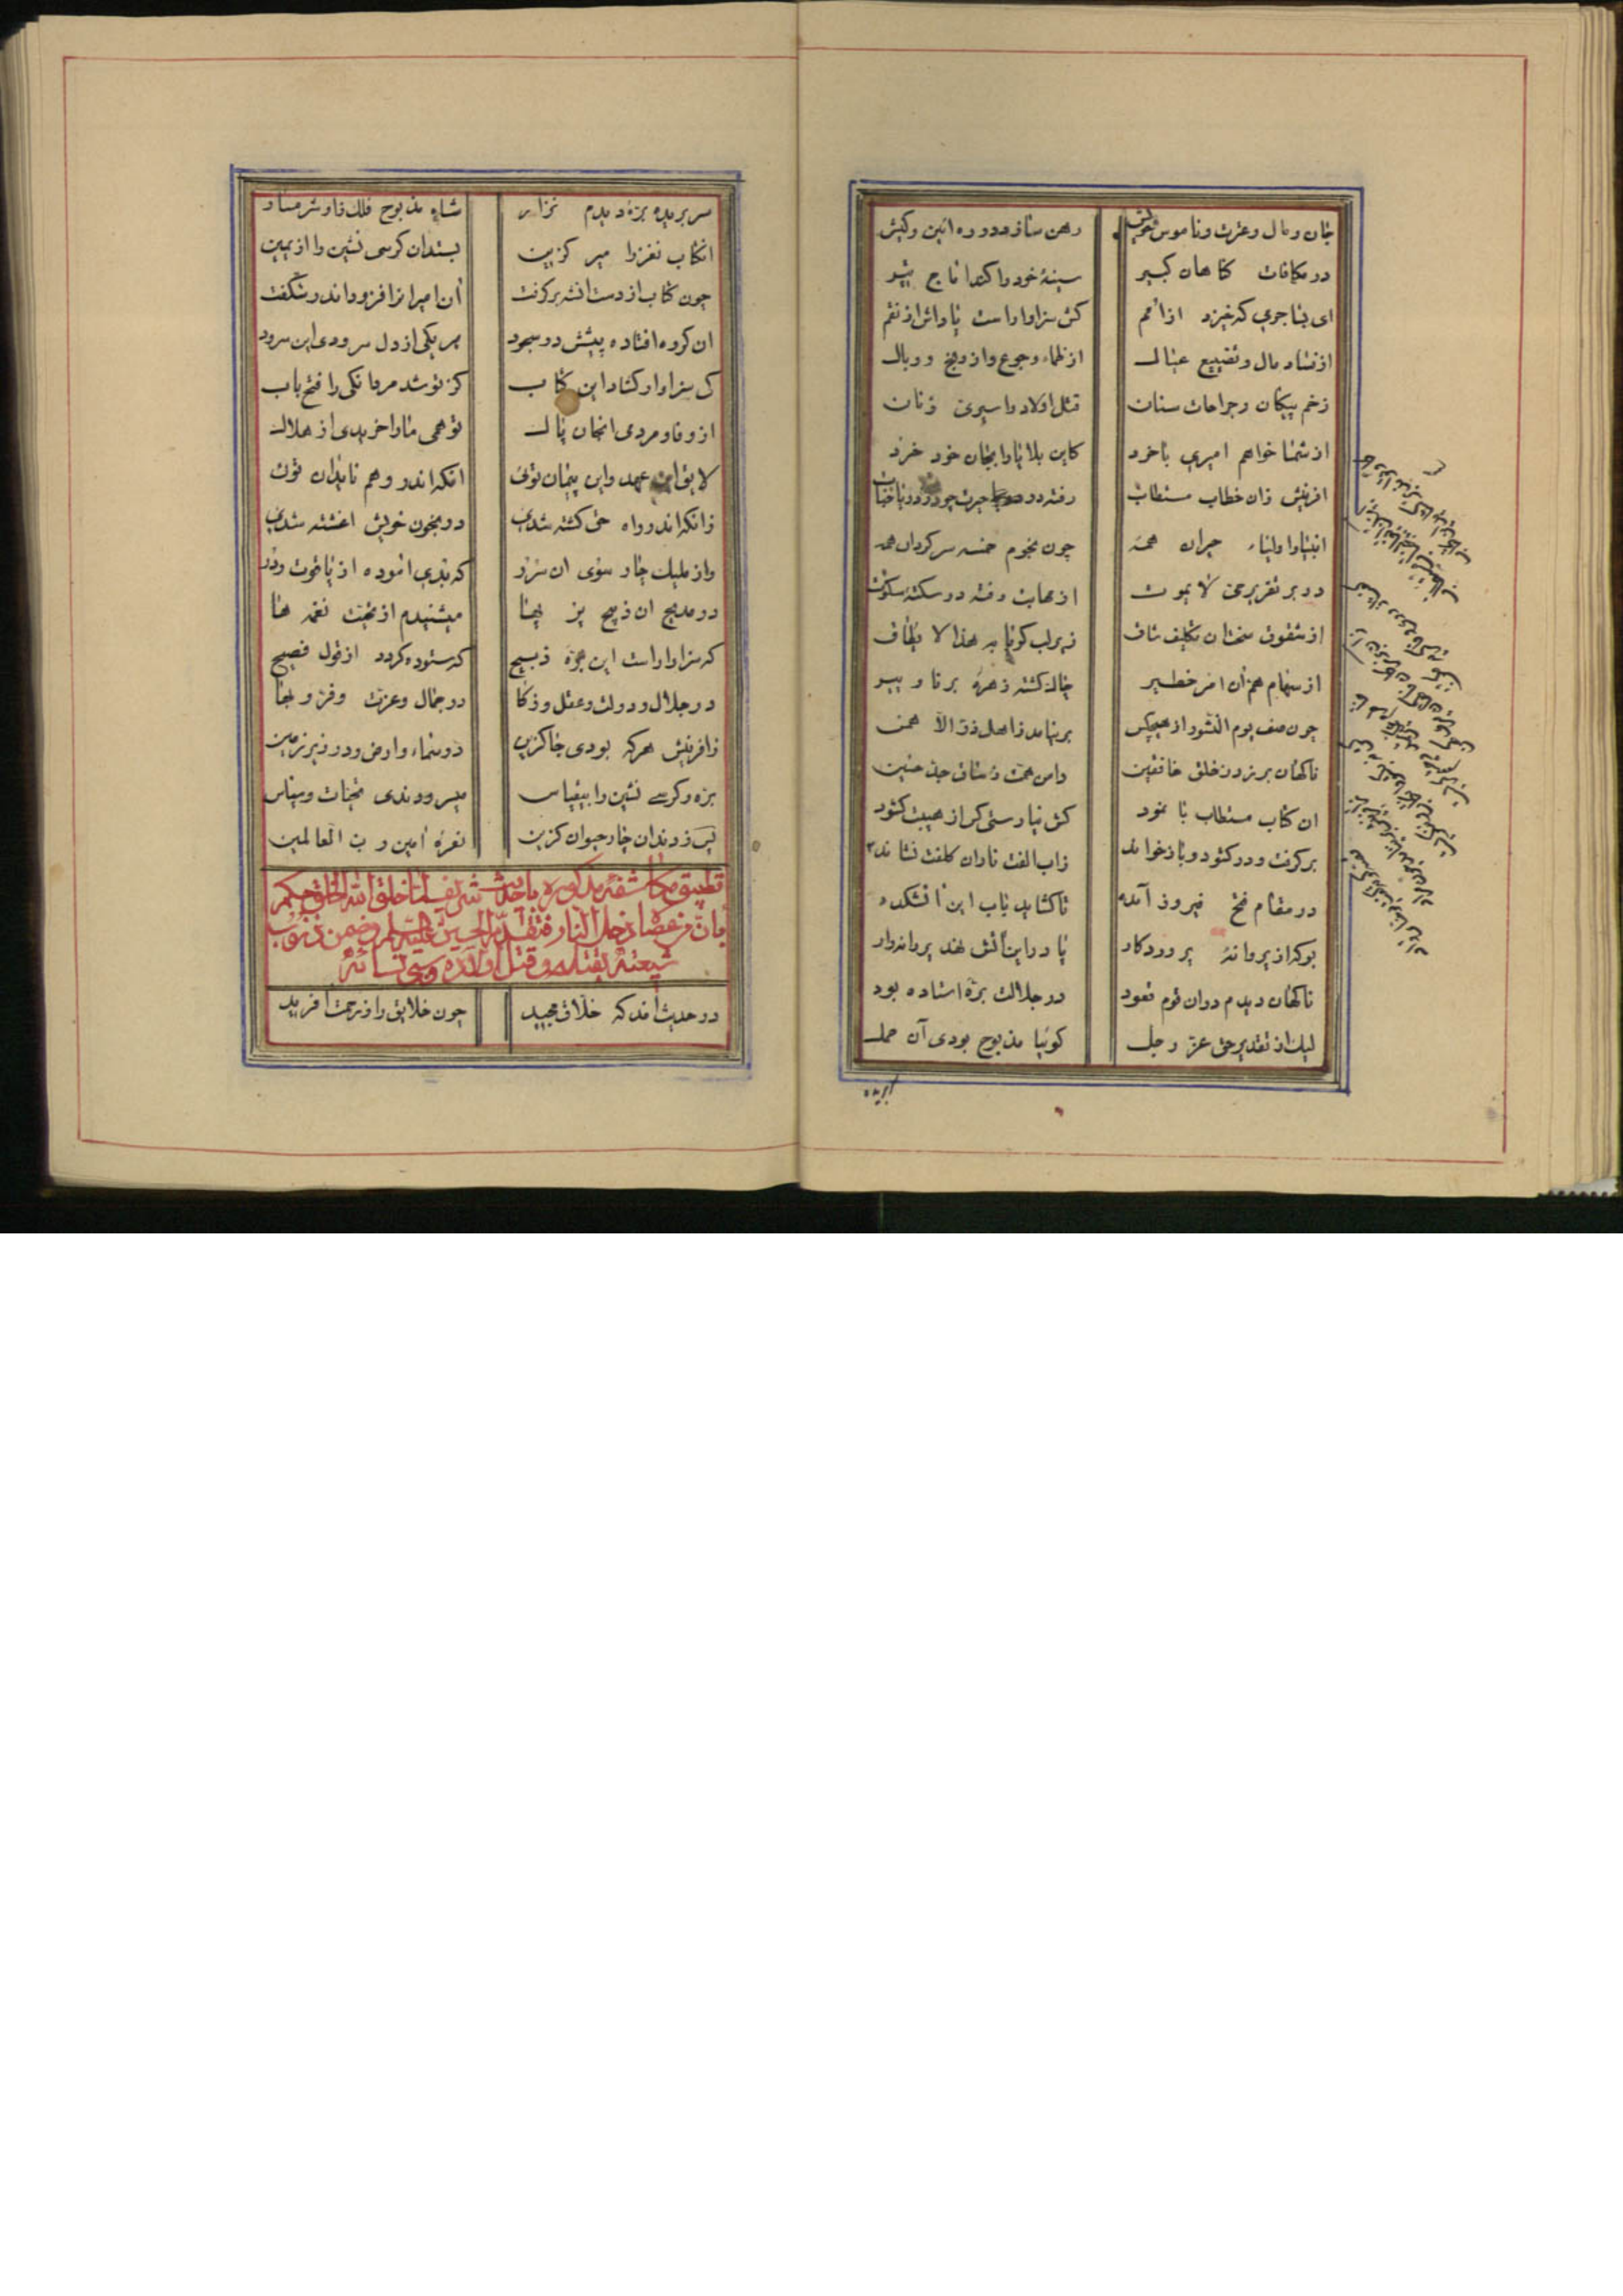 جان و مال و عزت و ناموس خویش رهن سازد در ره آئین و کیش
در مکافات کناهان کبیر سینهٔ خود را کند اماج تیر
ای بنا جوی که خیزد از امم کش سزاوار است پاداش از نقم
از فساد مال و تضییع عیال از ظماء و جوع و از ویخ و وبال
زخم پیکان و جراحات سنان قتل اولاد و اسیری زنان
از شما خواهم امیری باخرد کاین بلایا را بجان خود خرد
افرینش زان خطاب مستطاب رفته در حیرت چو
انبیا و اولیاء حیران همه چون نجوم خمسه سرکردان همه
در بر تقریر حی لا یموت از مهابت رفته در سکته سکوت
از شقوق سختان تکلیف شاق زیر لب کویا به هذا لا یطاق
از سهام هم آن امر خطیر چاک کشته زهرهٔ برنا و پیر
چون صف یوم النشور از هیچکس برنیامد زاهل ذر الا همس
ناکهان برزد ز خلق خافقین دامن همت ز ساق جان حسین
ان کتاب مستطاب با نمود کش نیارستی کس از هیبت کشود
برکرفت و در کشود و باز خواند زاب الفت نار ان کلفت نشاند
در مقام فتح فیروز آمده تا کشاید باب این اتشکده
بو که از پروانهٔ پروردکار پا در این آتش نهد پروانه‌وار
ناکهان دیدم در ان قوم قعود در جلالت برهٔ استاده بود
لیک از تقدیر حق عز و جل کوئیا مذبوح بودی آن حمل
ابریده
سر بریده بره دیدم نزار شاه مذبوح فلک
انکتاب نغز را میر کزین بستد ان کرسی نشین را از یمین
چون کتاب از دست انشه برکرفت آن امیرانرا فزود اندر شکفت
ان کروه افتاده پیشش در سجود هر یکی از دل سرودی این سرود
کی سزاوار کشاد این کتاب کز تو شد مردانکی را فتح باب
از وفا و مردی انجان پاک تو همی ما را خریدی از هلاک
لایق این عهد و این پیمان توئی انکه اندر وهم ناید ان توئی
زانکه اندر راه حق کشته شدی در بخون خویش اغشته شدی
واز ملیک چار سوی ان سرز که بدی اموده از یاقوت و در
در مدیح ان ذبیح پر بها میشنیدم از تحیت نغمه ها
که سزاوار است این برّه ذبیح که ستوده کردد از قول فصیح
در جلال و دولت و عقل و ذکا در جمال و عزت و فر و بها
زافرینش هرکه بودی جاکزین در سماء و ارض و در زیر زمین
بره و کرسی نشین را بیقیاس میسرودندی تحیات و سپاس
پس زدندان چار حیوان کزین نعرهٔ آمین رب العالمین
تطبیق مکاشفهٔ مذکوره با حدیث شریف لما خلق الله الخلق حکم
بان من عصاه دخل النار فتقدم الحسین علیه السلم و ضمن ذنوب
شیعته بقتله و قتل اولاده و سبی نسائه
در حدیث آمد که خلاق مجید چون خلایق را ز رحمت افرید